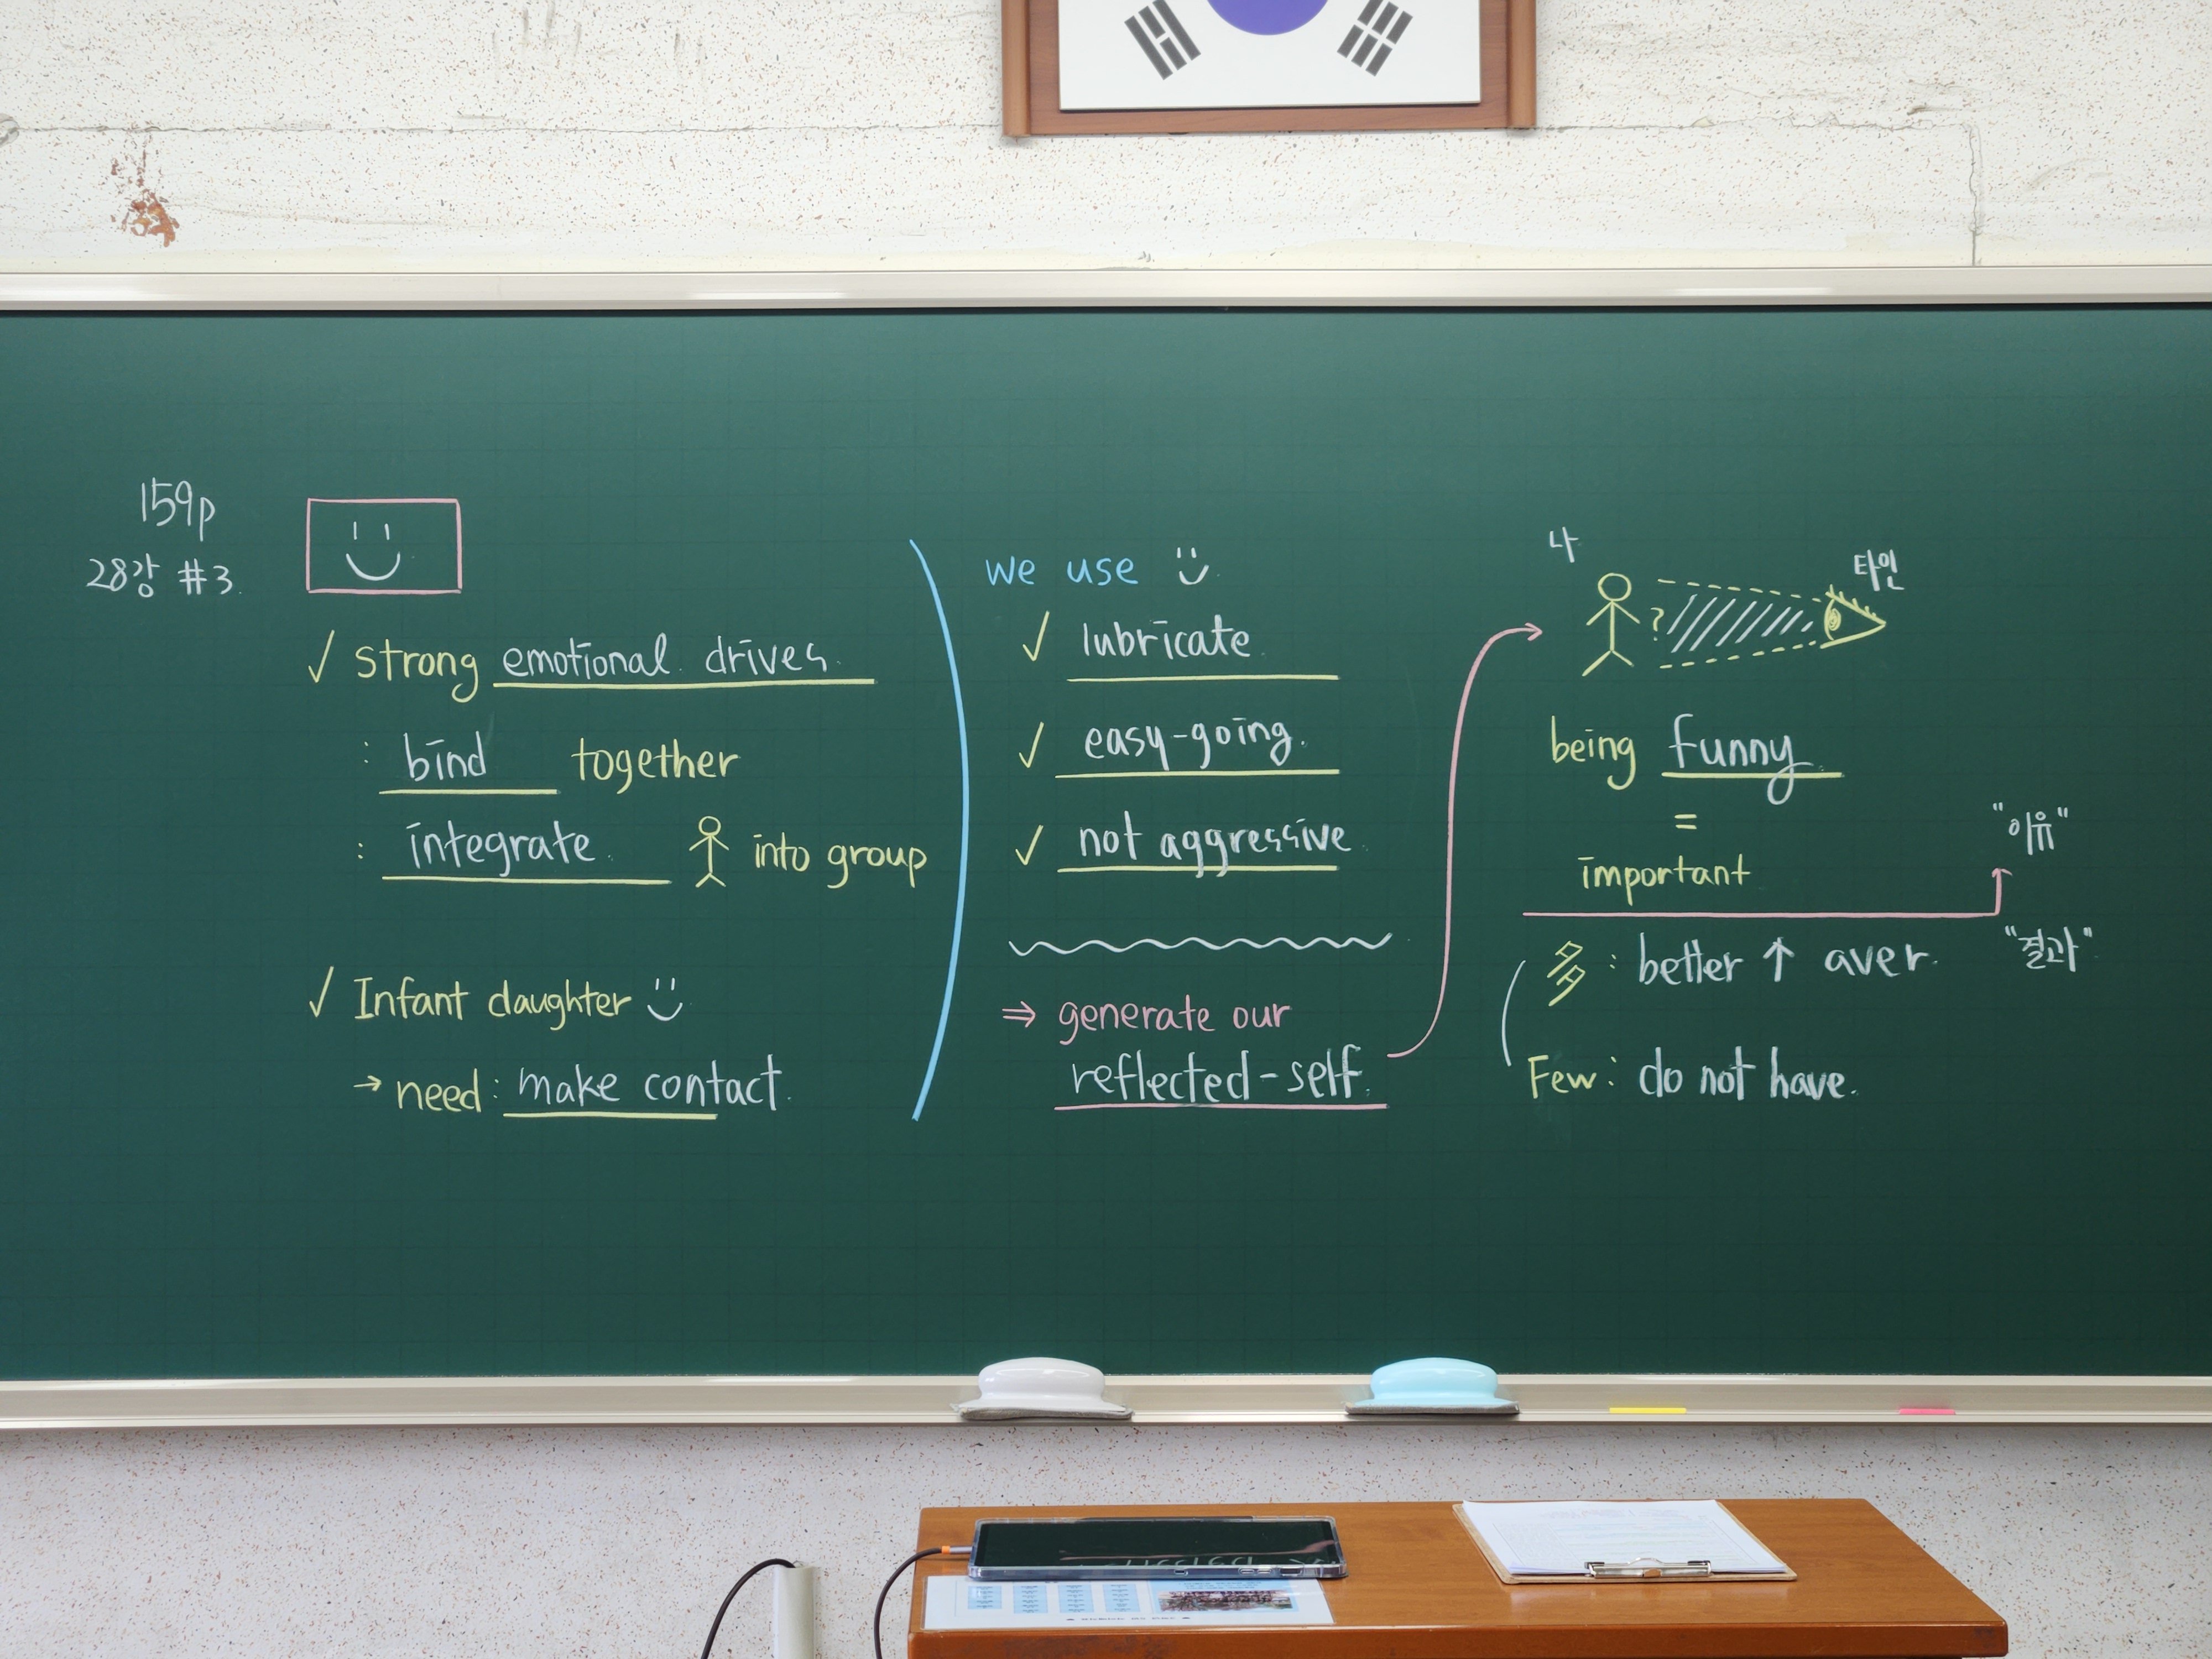 159p
28강 #3.
✓ strong emotional drives.
: bind together
: integrate. into group
✓ Infant daughter
→ need : make contact.
we use
✓ lubricate.
✓ easy-going.
✓ not aggressive
⇒ generate our
reflected-self.
나
타인
?
being funny.
=
important
"이유"
多 : better ↑ aver.
"결과"
Few : do not have.